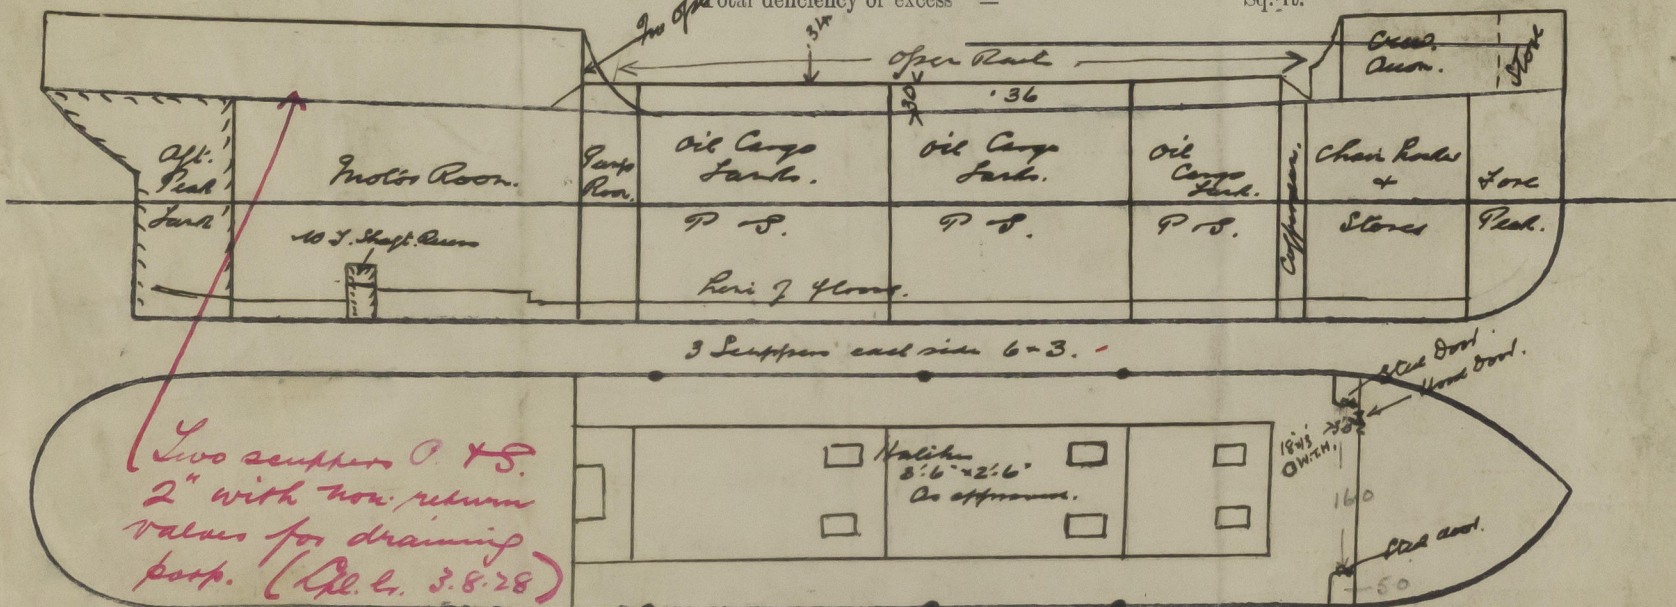 Total deficiency or excess = Sq. Ft.
34
Open Rail
Crew
Accom.
Store
30
.36
Aft.
Peak
Tank
Motor Room.
Pump
Room.
Oil Cargo
Tanks.
P S.
Oil Cargo
Tanks.
P S.
Oil
Cargo
Tank.
P S.
Cofferdam.
Chain Locker
&
Stores
Fore
Peak.
W.T. Shaft Recess
Line of floors.
3 Scuppers each side 6 × 3.
Steel Door
Wood Door.
Hatches
3'.6" × 2'.6"
As approved.
W.T.H.
160
Steel door.
50
Two scuppers P. & S.
2" with non-return
valves for draining
poop. (Lpl. Lr. 3.8.28)